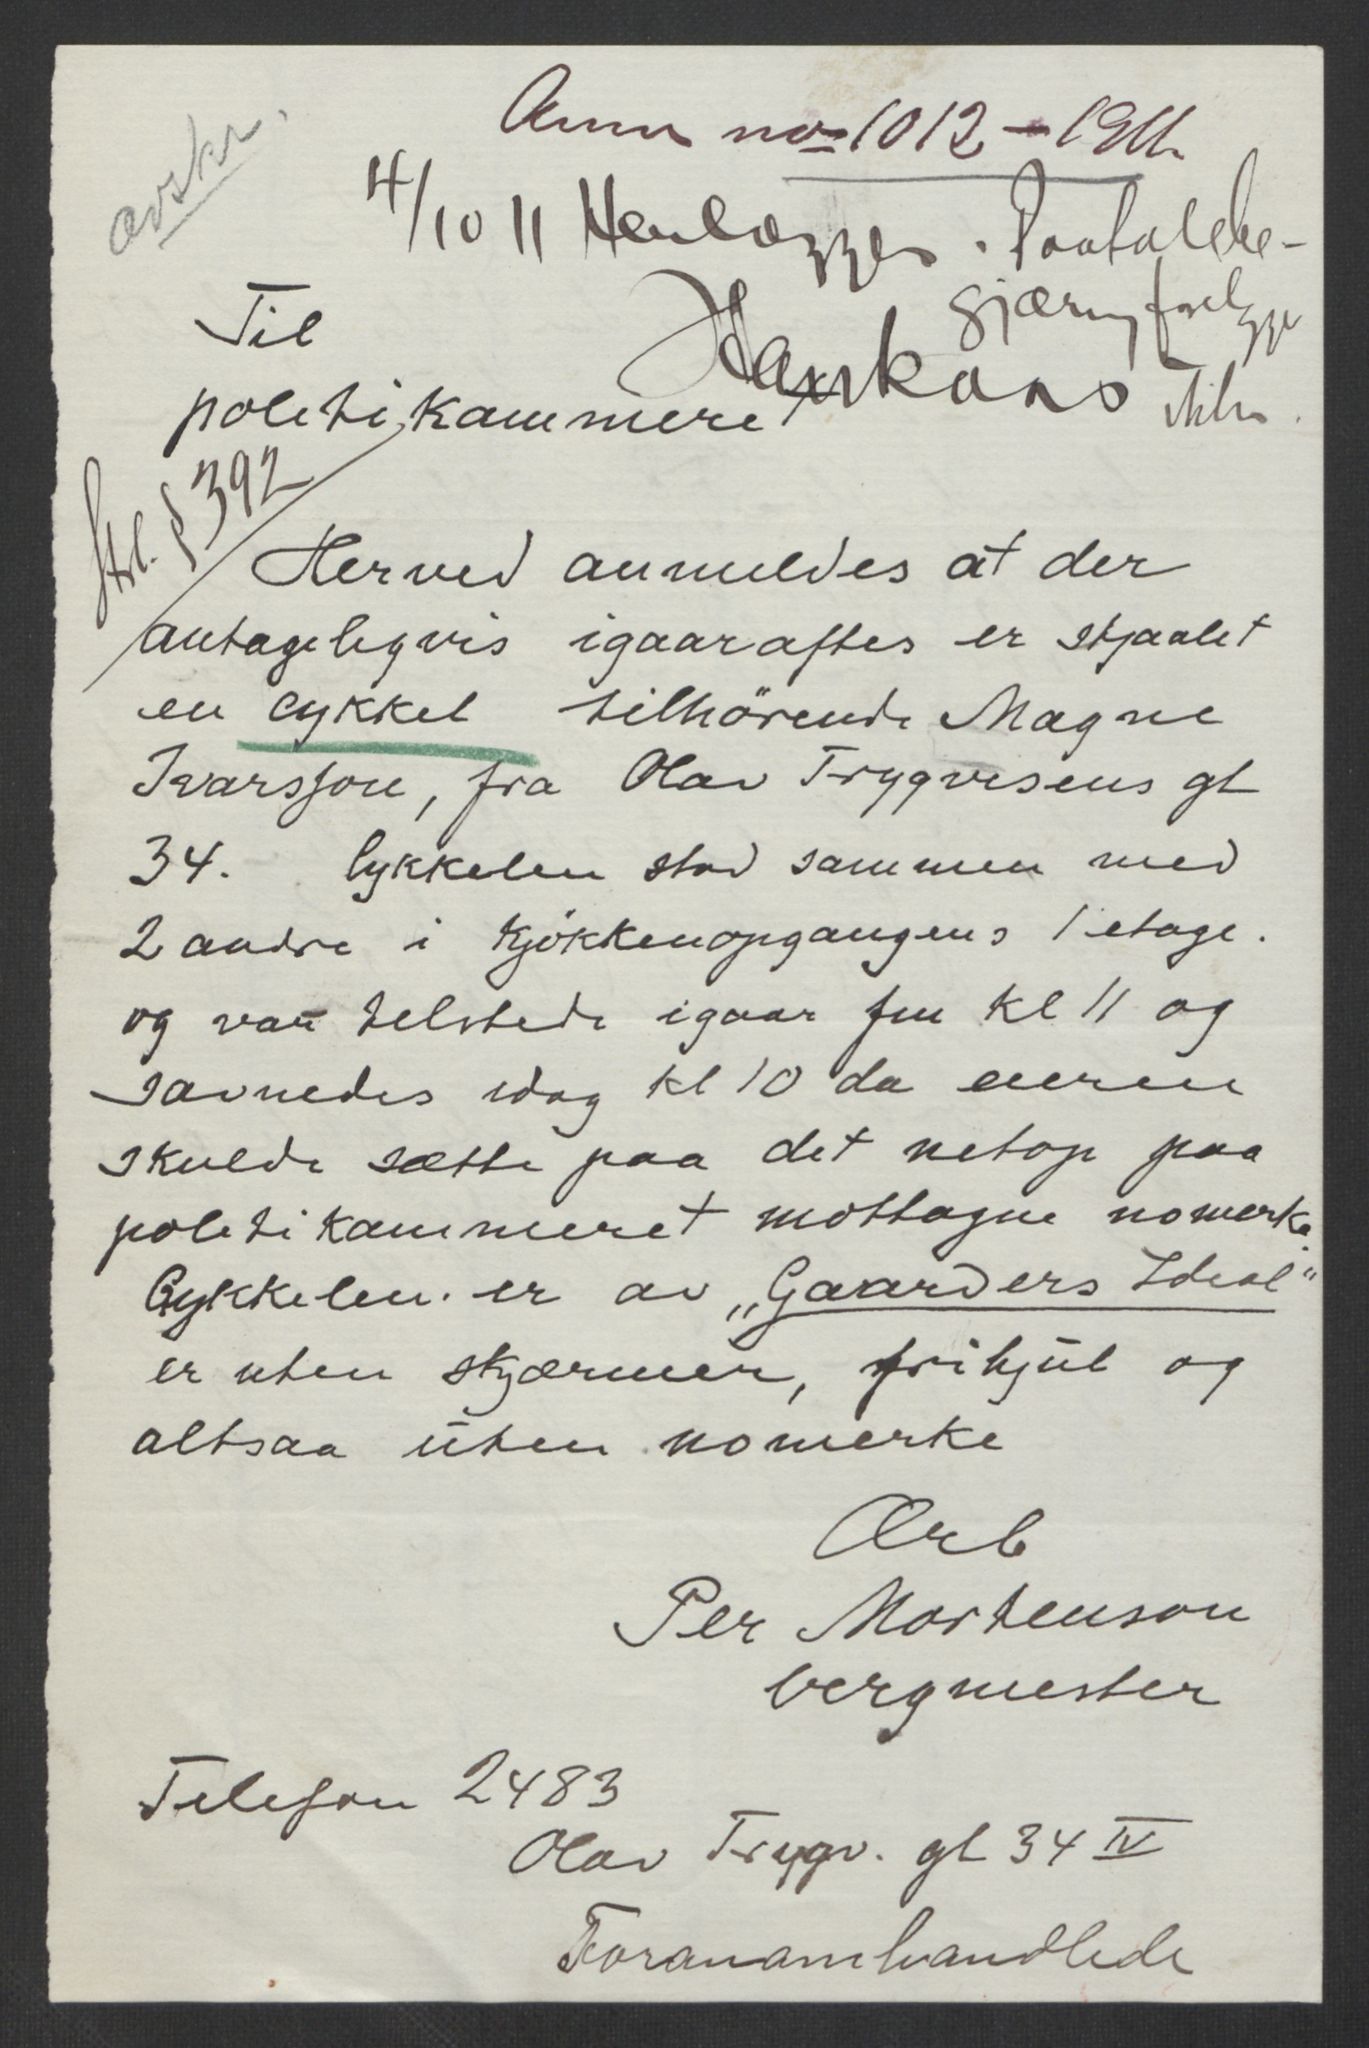 Anm no 1012 - 1911.
avskr.
4/10 11 Henlægges. Paatalebe-
gjæring foreligger
ikke.
Til
politikammeret
Strl. § 392
Herved anmeldes at der
antageligvis igaaraftes er stjaalet
en cykkel tilhörende Magne
Ivarsson, fra Olav Trygvesens gt
34. Cykkelen stod sammen med
2 andre i kjökkenopgangens 1 etage.
og var telstede igaar fm kl 11 og
savnedes idag kl 10 da eieren
skulde sætte paa det netop paa
politikammeret mottagne nomerke.
Cykkelen er av „Gaarders Ideal"
er uten skjærmer, frihjul og
altsaa uten nomerke
Ærb
Per Mortenson
bergmester
Telefon 2483
Olav Trygv. gt 34 IV